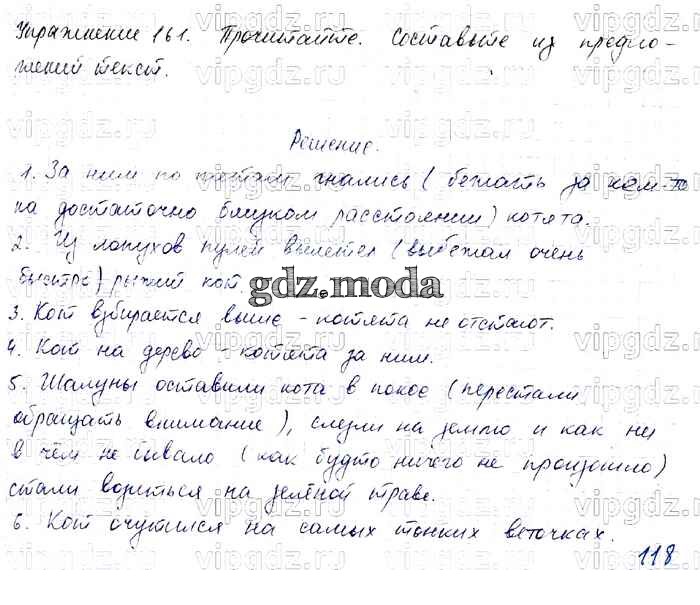 Упражнение 161. Прочитайте. Составьте из предло-
жений текст.
Решение.
1. За ним по пятам гнались (бежать за кем-то
на достаточно близком расстоянии) котята.
2. Из лопухов пулей вылетел (выбежал очень
быстро) рыжий кот.
gdz.moda
3. Кот взбирается выше - котята не отстают.
4. Кот на дерево - котята за ним.
5. Шалуны оставили кота в покое (перестали
обращать внимание), слезли на землю и как ни
в чём не бывало (как будто ничего не произошло)
стали возиться на зелёной траве.
6. Кот очутился на самых тонких веточках.
118